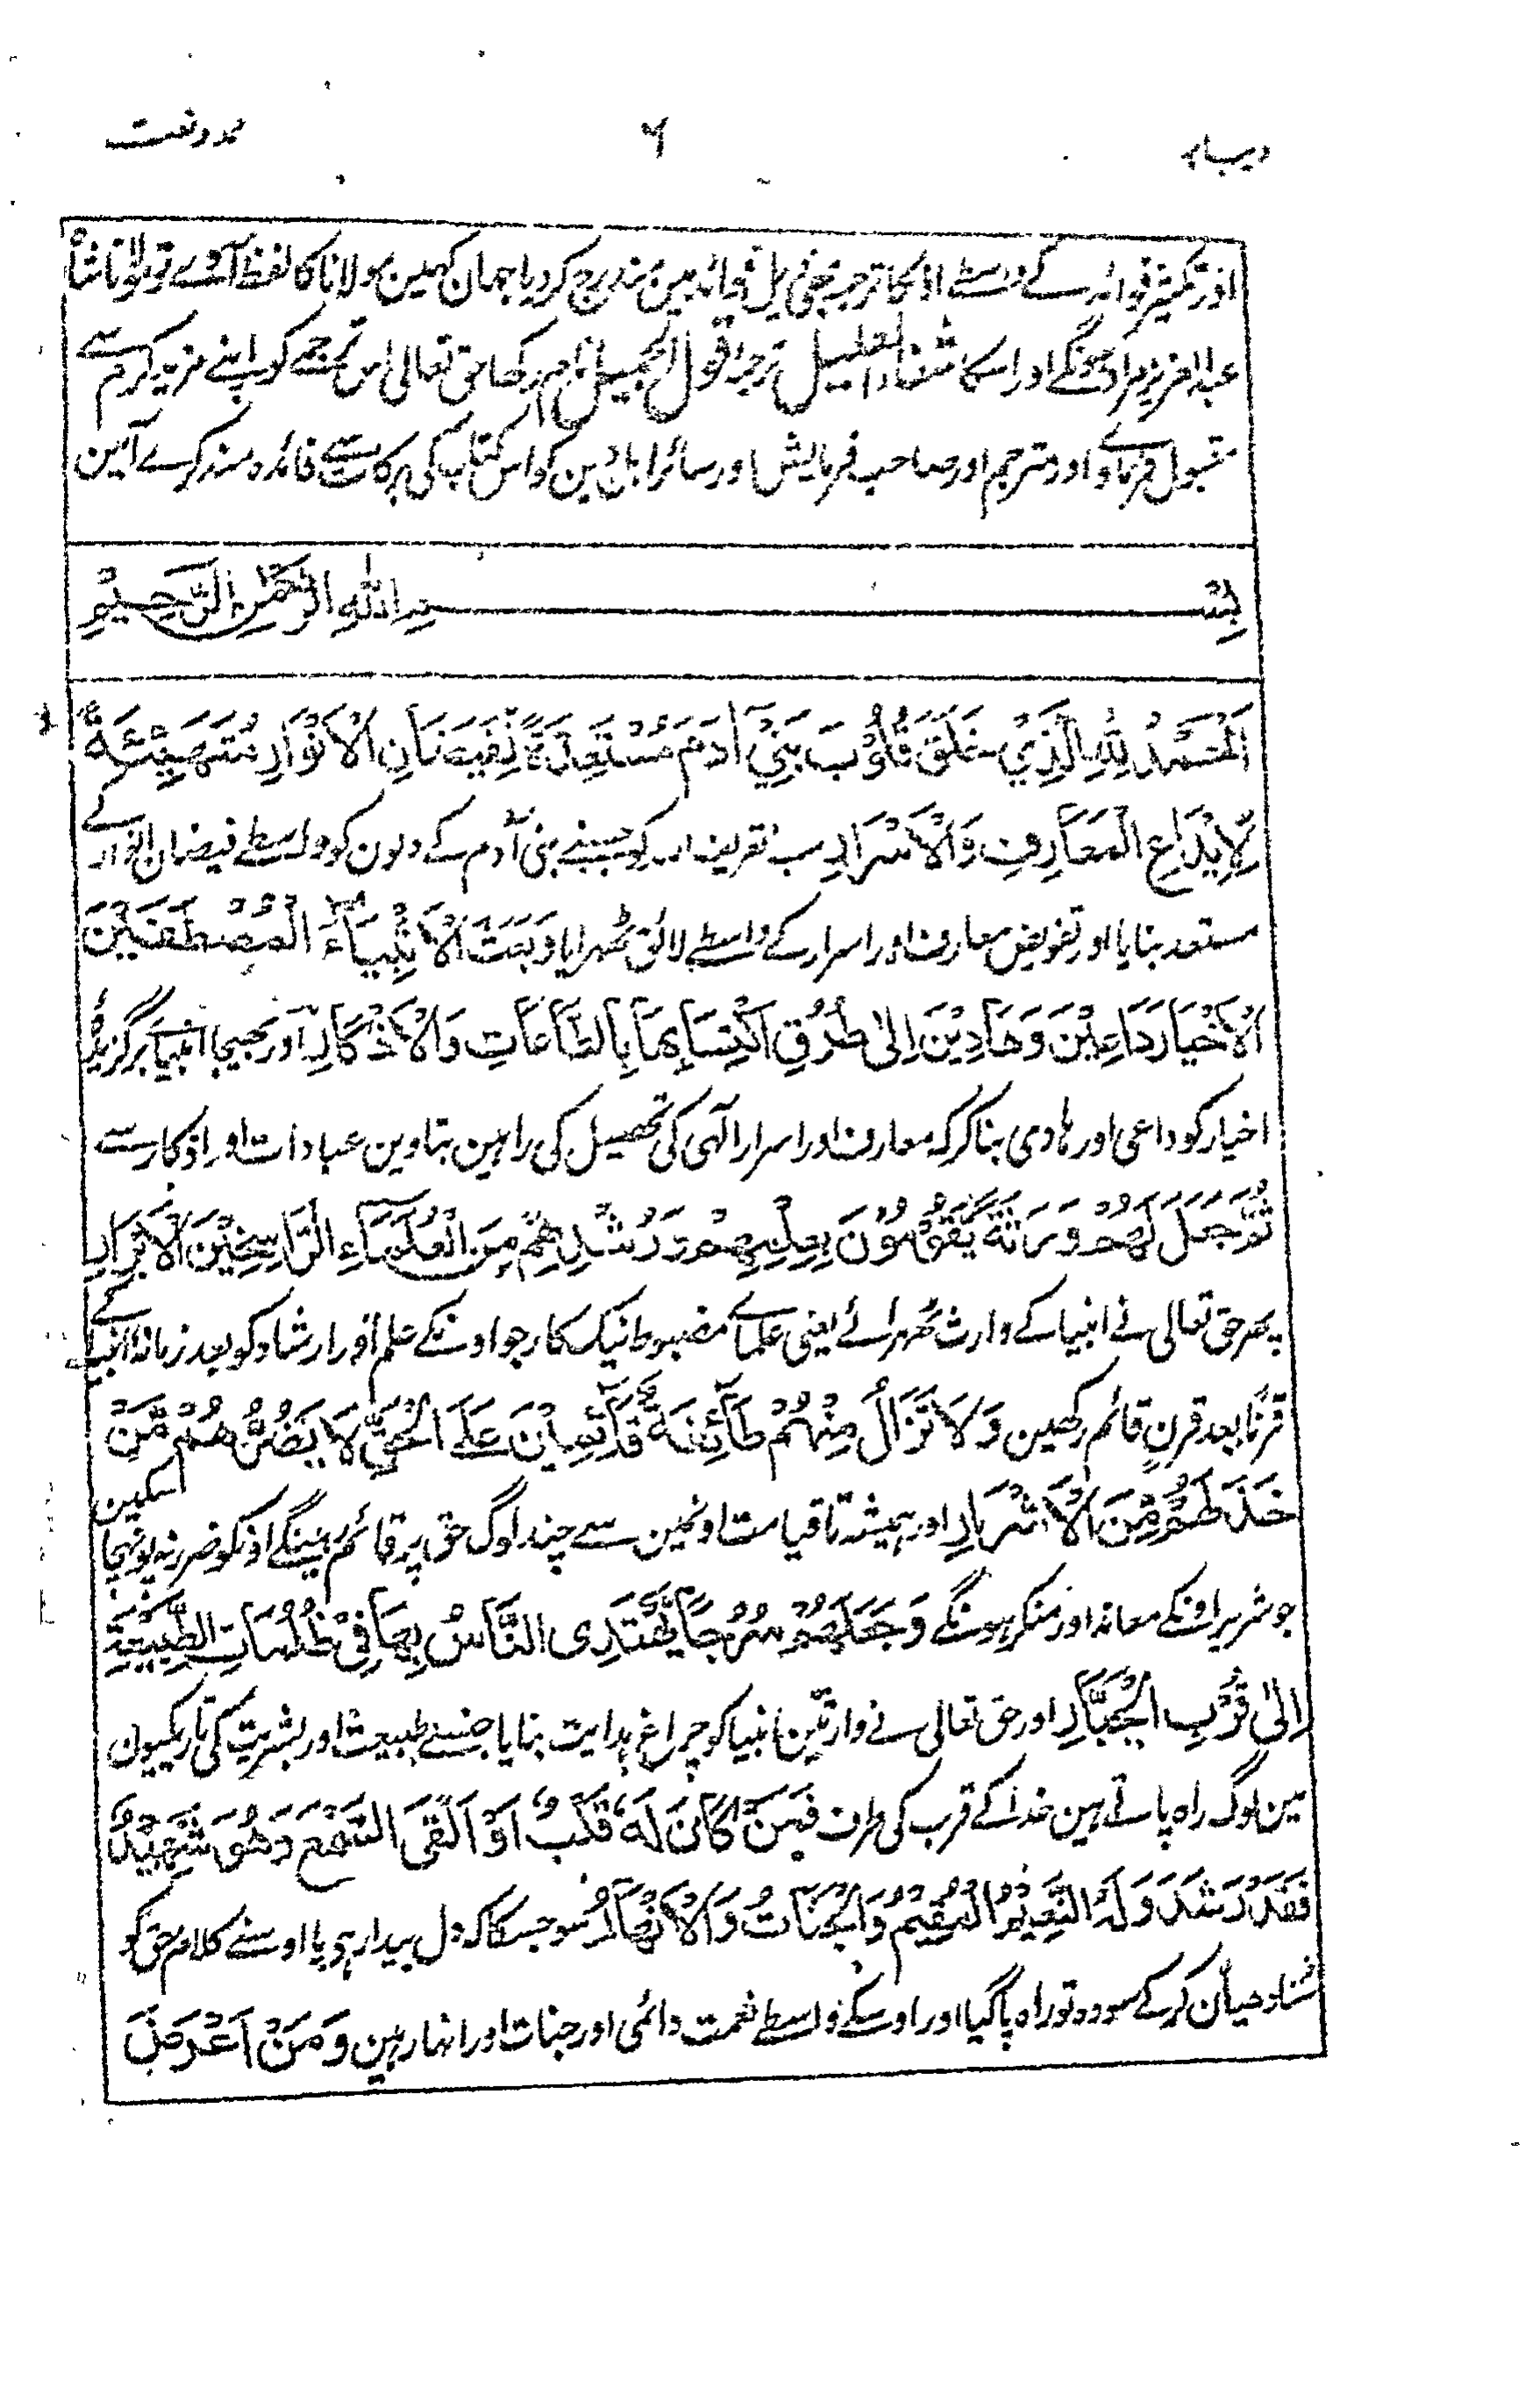 دیباچہ ۶ حمد و نعت
اور تکثیر فوائد کے واسطے اوسکا ترجمہ بھی ذیل فوائد مین مندرج کر دیا جہان کہین مولانا کا لفظ آوے تو مولانا شاہ
عبد العزیز مراد ہونگے اور اسکا شفاء العلیل ترجمہ قول الجمیل نام رکھا حق تعالی اس ترجمے کو اپنے مزید کرم سے
مقبول فرماوے اور مترجم اور صاحب فرمایش اور سائر اہل دین کو اس کتاب کی برکات سے فائدہ مند کرے آمین
بِسْمِ اللّٰهِ الرَّحْمٰنِ الرَّحِيْمِ
اَلْحَمْدُ لِلّٰهِ الَّذِيْ خَلَقَ قُلُوْبَ بَنِيْ آدَمَ مُسْتَعِدَّةً لِّفَيَضَانِ الْاَنْوَارِ مُتَهَيِّئَةً
لِّاِيْدَاعِ الْمَعَارِفِ وَالْاَسْرَارِ سب تعریف اللہ کو جسنے بنی آدم کے دلون کو واسطے فیضان انوار کے
مستعد بنایا اور تفویض معارف اور اسرار کے واسطے لائق ٹھہرایا وَبَعَثَ الْاَنْبِيَآءَ الْمُصْطَفَيْنَ
الْاَخْيَارَ دَاعِيْنَ وَهَادِيْنَ اِلٰى طُرُقِ اكْتِسَابِهَا بِالطَّاعَاتِ وَالْاَذْكَارِ اور بھیجا انبیاے برگزیدہ
اخیار کو داعی اور ہادی بنا کر کہ معارف اور اسرار الٰہی کی تحصیل کی راہین بتاوین عبادات اور اذکار سے
ثُمَّ جَعَلَ لَهُمْ وَرَثَةً يَّقُوْمُوْنَ بِعِلْمِهِمْ وَرُشْدِهِمْ مِنَ الْعُلَمَاءِ الرَّاسِخِيْنَ الْاَبْرَارِ
پھر حق تعالی نے انبیا کے وارث ٹھہرائے یعنی علماے مضبوط نیک کار جو اونکے علم اور ارشاد کو بعد زمانۂ انبیا کے
قرنًا بعد قرنٍ قائم رکھین وَلَا تَزَالُ مِنْهُمْ طَآئِفَةٌ قَآئِمِيْنَ عَلَى الْحَقِّ لَا يَضُرُّهُمْ مَّنْ
خَذَلَهُمْ مِّنَ الْاَشْرَارِ اور ہمیشہ تا قیامت اونمین سے چند لوگ حق پر قائم رہینگے اونکو ضرر نہ پونہچا سکین
جو شریر اونکے معاند اور منکر ہونگے وَجَعَلَهُمْ سُرُجًا يَّهْتَدِى النَّاسُ بِهَا فِيْ ظُلُمَاتِ الطَّبِيْعَةِ
اِلٰى قُرْبِ الْجَبَّارِ اور حق تعالی نے وارثین انبیا کو چراغ ہدایت بنایا جنسے طبیعت اور بشریت کی تاریکیون
مین لوگ راہ پاتے ہین خدا کے قرب کی طرف فَمَنْ كَانَ لَهٗ قَلْبٌ اَوْ اَلْقَى السَّمْعَ وَهُوَ شَهِيْدٌ
فَقَدْ رَشَدَ وَلَهُ النَّعِيْمُ الْمُقِيْمُ وَالْجَنَّاتُ وَالْاَنْهَارُ سو جسکا کہ دل بیدار ہی یا اوسنے کلام حق کو
سُنا دھیان کر کے سو وہ تو راہ پا گیا اور اوسکے واسطے نعمت دائمی اور جنات اور انہار ہین وَمَنْ اَعْرَضَ